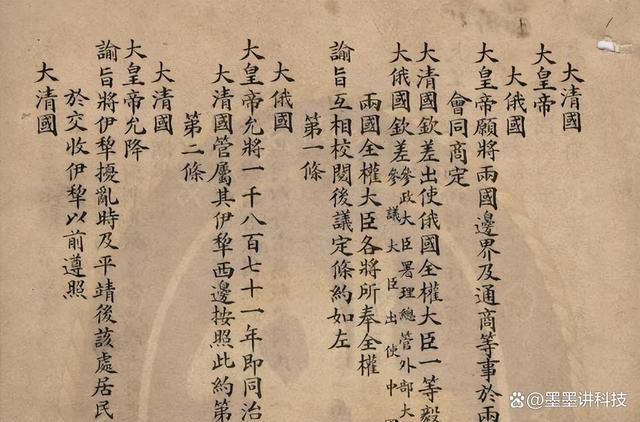 大清國
大皇帝
大俄國
大皇帝願將兩國邊界及通商等事於兩
會同商定
大清國欽差出使俄國全權大臣一等毅
大俄國欽差參政大臣署理總管外部大
參議大臣出使中
兩國全權大臣各將所奉全權
諭旨互相校閱後議定條約如左
第一條
大俄國
大皇帝允將一千八百七十一年即同治
大清國管屬其伊犂西邊按照此約第
第二條
大清國
大皇帝允降
諭旨將伊犂擾亂時及平靖後該處居民
於交收伊犂以前遵照
大清國
@墨墨讲科技